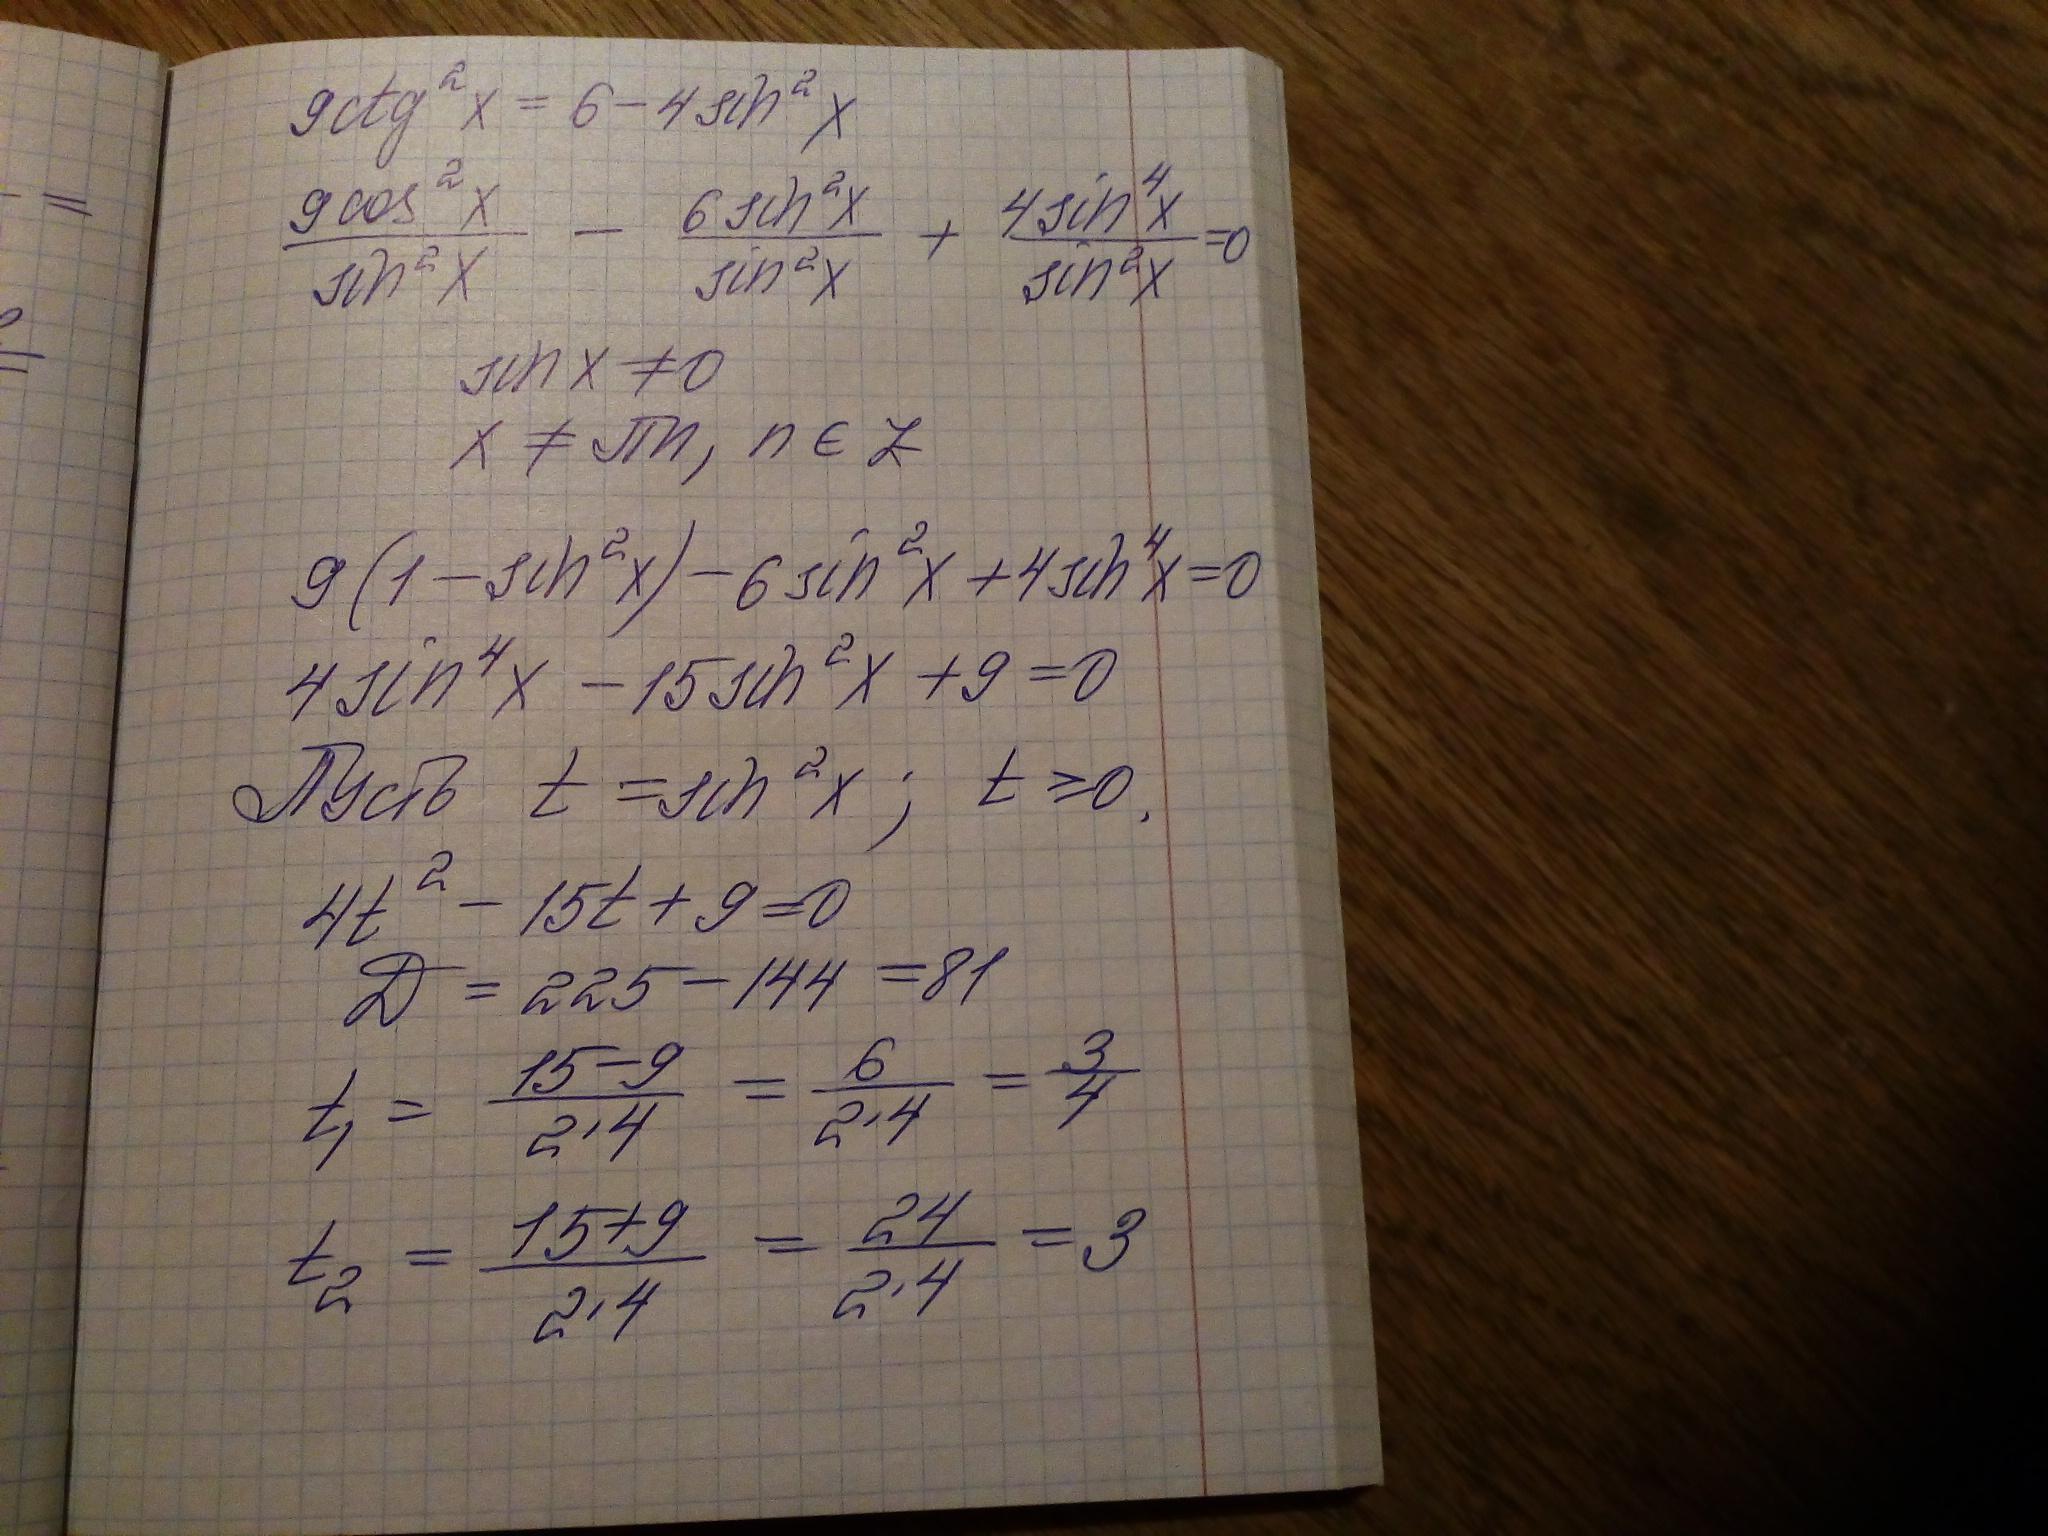 9ctg²x = 6 - 4sin²x
9cos²x/sin²x - 6sin²x/sin²x + 4sin⁴x/sin²x = 0
sin x ≠ 0
x ≠ πn, n ∈ Z
9(1 - sin²x) - 6sin²x + 4sin⁴x = 0
4sin⁴x - 15sin²x + 9 = 0
Пусть t = sin²x; t ≥ 0.
4t² - 15t + 9 = 0
Д = 225 - 144 = 81
t₁ = (15-9)/(2·4) = 6/(2·4) = 3/4
t₂ = (15+9)/(2·4) = 24/(2·4) = 3